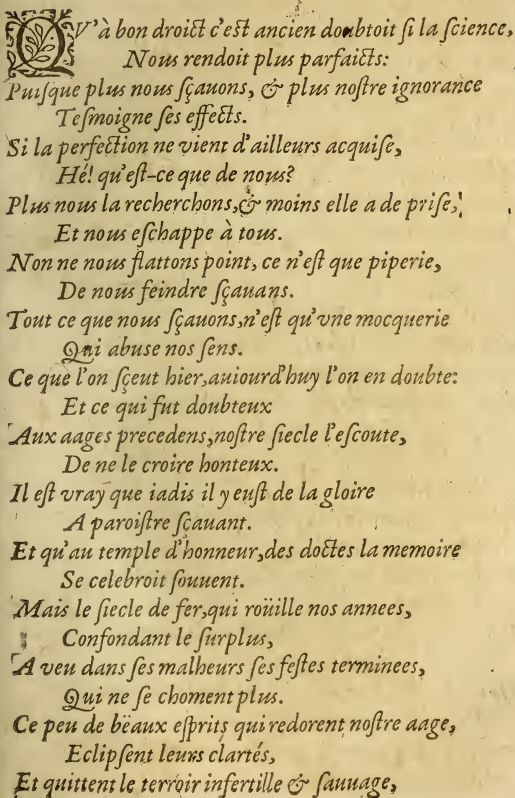 QV'à bon droict c'est ancien doubtoit si la science,
Nous rendoit plus parfaicts:
Puisque plus nous sçauons, & plus nostre ignorance
Tesmoigne ses effects.
Si la perfection ne vient d'ailleurs acquise,
Hé! qu'est-ce que de nous?
Plus nous la recherchons, & moins elle a de prise,
Et nous eschappe à tous.
Non ne nous flattons point, ce n'est que piperie,
De nous feindre sçauans.
Tout ce que nous sçauons, n'est qu'vne mocquerie
Qui abuse nos sens.
Ce que l'on sçeut hier, auiourd'huy l'on en doubte:
Et ce qui fut doubteux
Aux aages precedens, nostre siecle l'escoute,
De ne le croire honteux.
Il est vray que iadis il y eust de la gloire
A paroistre sçauant.
Et qu'au temple d'honneur, des doctes la memoire
Se celebroit souuent.
Mais le siecle de fer, qui roüille nos annees,
Confondant le surplus,
A veu dans ses malheurs ses festes terminees,
Qui ne se choment plus.
Ce peu de beaux esprits qui redorent nostre aage,
Eclipsent leurs clartés,
Et quittent le terroir infertille & sauuage,